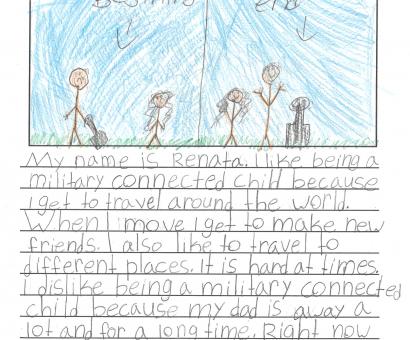 Beginning end
My name is Renata. I like being a
military connected child because
I get to travel around the world.
When I move I get to make new
friends. I also like to travel to
different places. It is hard at times.
I dislike being a military connected
child because my dad is away a
lot and for a long time. Right now